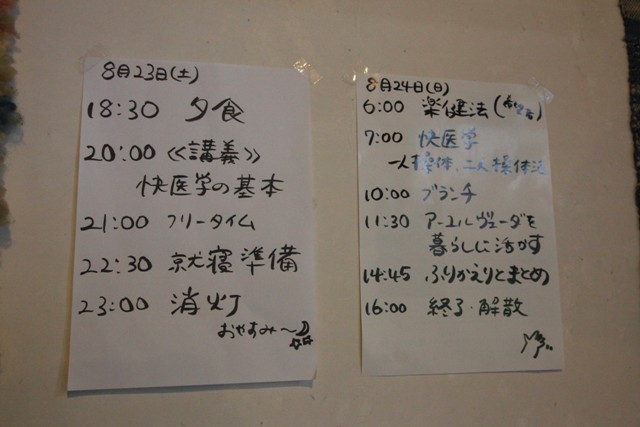 8月23日(土)
18:30 夕食
20:00 《講義》
快医学の基本
21:00 フリータイム
22:30 就寝準備
23:00 消灯
おやすみ〜
8月24日(日)
6:00 楽健法(
7:00 快医学
一人操体、二人操体法
10:00 ブランチ
11:30 アーユルヴェーダを
暮らしに活かす
14:45 ふりかえりとまとめ
16:00 終了・解散